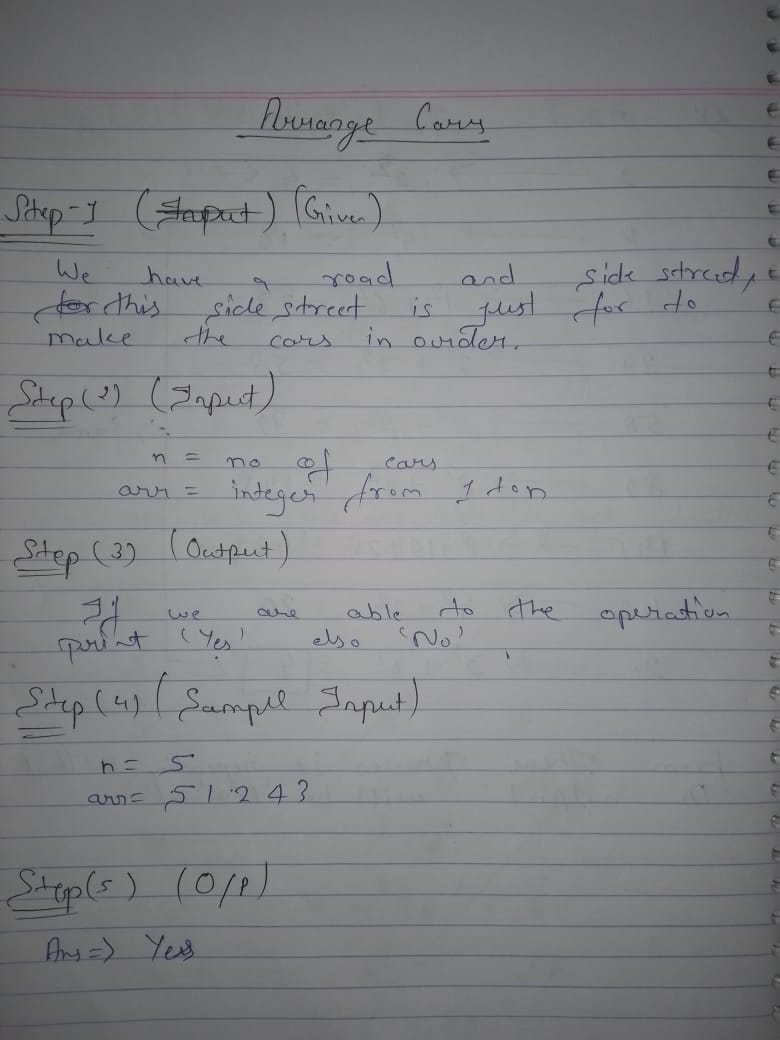 Arrange Cars
Step-1 (Input) (Given)
We have a road and side street,
for this side street is just for to
make the cars in order.
Step (2) (Input)
n = no of cars
arr = integer from 1 to n
Step (3) (Output)
If we are able to the operation
print 'Yes' else 'No'.
Step (4) (Sample Input)
n = 5
arr = 5 1 2 4 3
Step (5) (O/P)
Ans => Yes